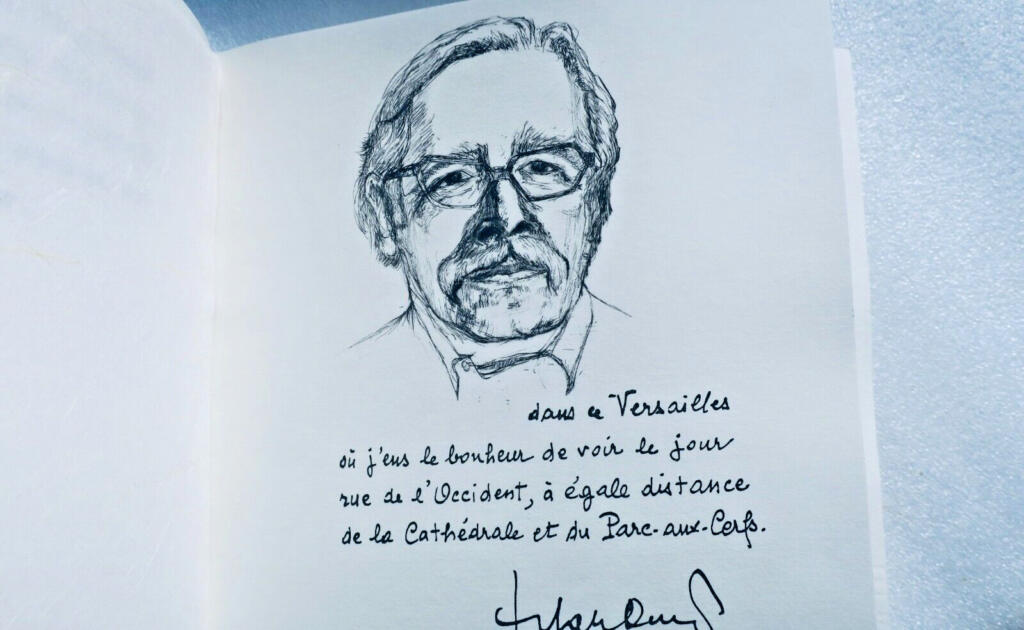 dans ce Versailles
où j'eus le bonheur de voir le jour
rue de l'Occident, à égale distance
de la Cathédrale et du Parc-aux-Cerfs.